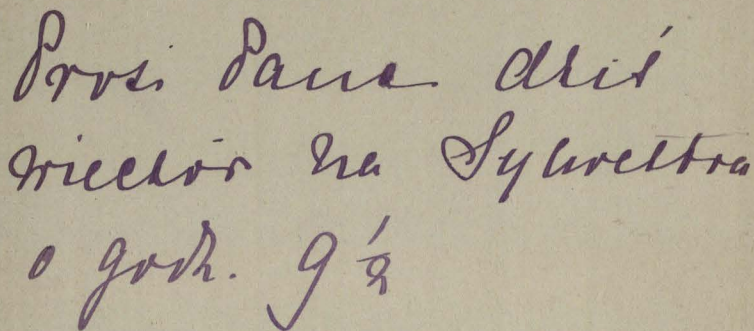 Prosi Pana dziś
wieczór na Sylwestra
o godz. 9 ½